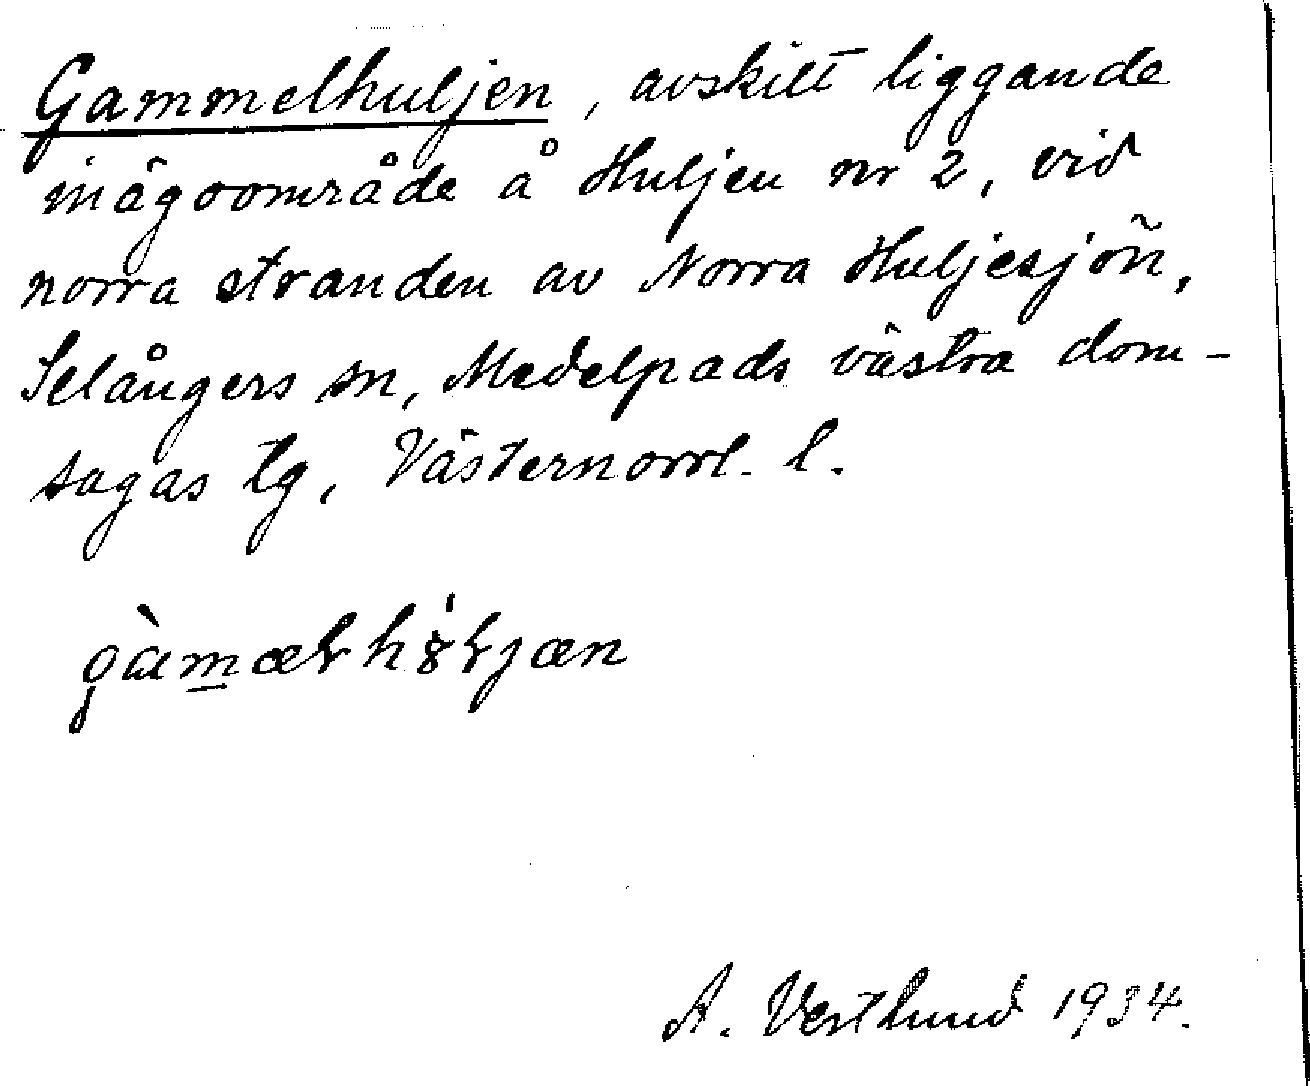 Gammelhuljen, avskilt liggande
inägoområde å Huljen nr 2, vid
norra stranden av Norra Huljesjön,
Selångers sn, Medelpads västra dom-
sagas tg, Västernorrl. l.
A. Vestlund 1934.